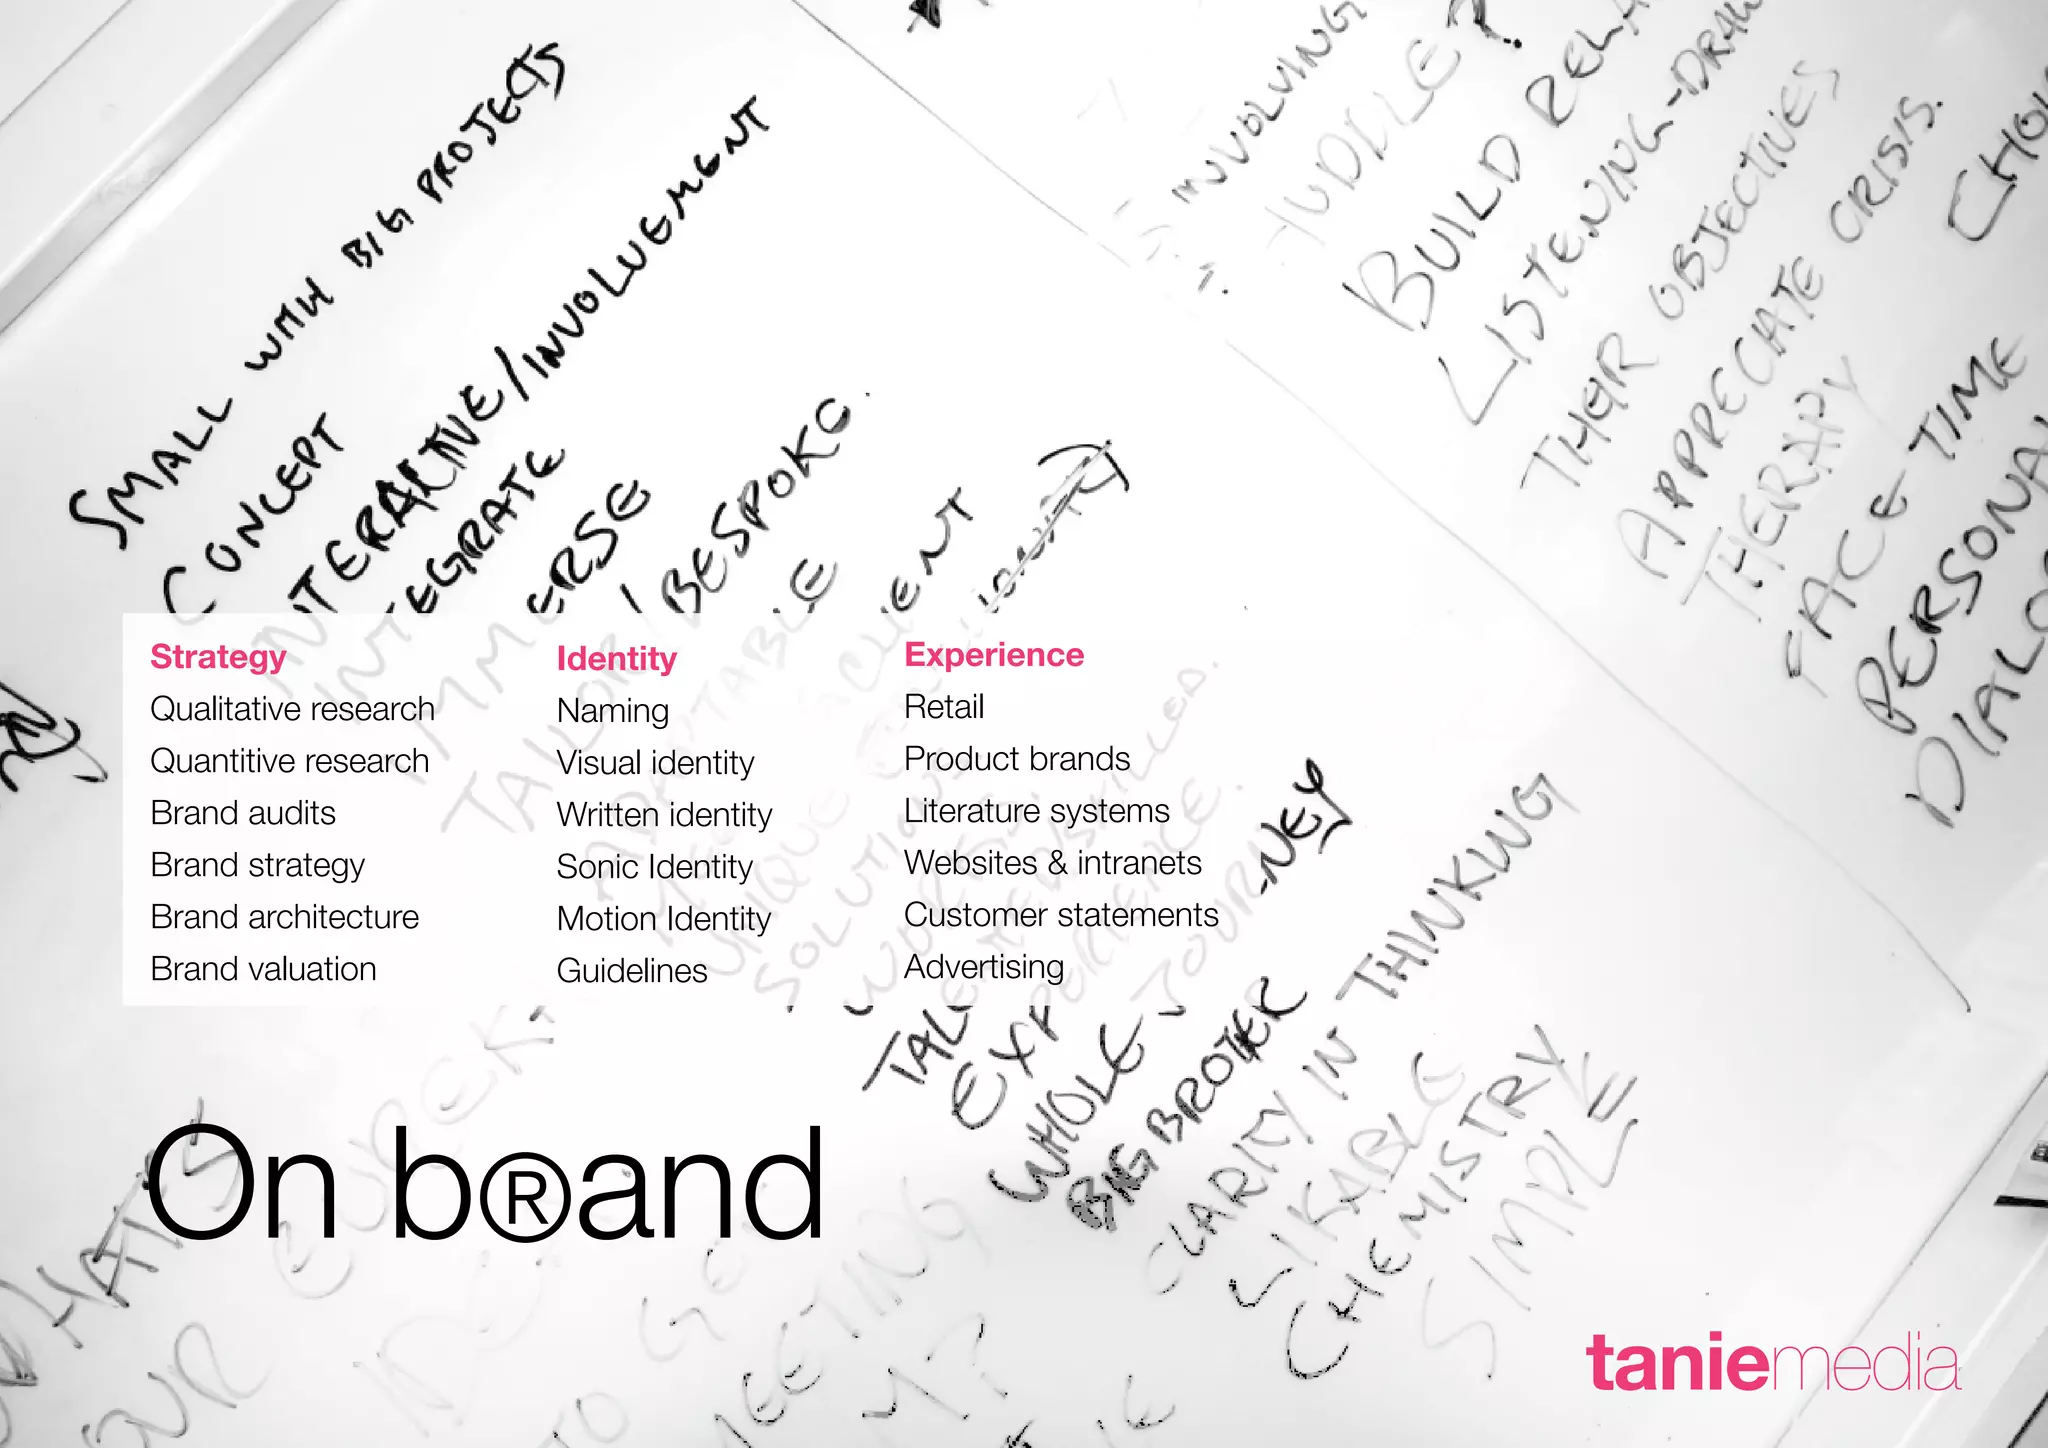 SMALL WITH BIG PROJECTS
CONCEPT
INTERACTIVE/INVOLVEMENT
INTEGRATE
IMMERSE
TAILOR/BESPOKE.
ADAPTABLE
CLIENT
UNIQUE
SOLUTIONS
EXPERIENCE.
WHOLE JOURNEY
BIG BROTHER
CLARITY IN THINKING
LIKABLE
CHEMISTRY
SIMPLE
INVOLVING
HUDDLE?
BUILD RELA
LISTENING-DRAW
THEIR OBJECTIVES
APPRECIATE CRISIS.
THERAPY
FACE TIME
PERSONAL
DIALO
Strategy
Qualitative research
Quantitive research
Brand audits
Brand strategy
Brand architecture
Brand valuation
Identity
Naming
Visual identity
Written identity
Sonic Identity
Motion Identity
Guidelines
Experience
Retail
Product brands
Literature systems
Websites & intranets
Customer statements
Advertising
On b®and
WHAT'S
OUR
TO GET
MEETING
taniemedia